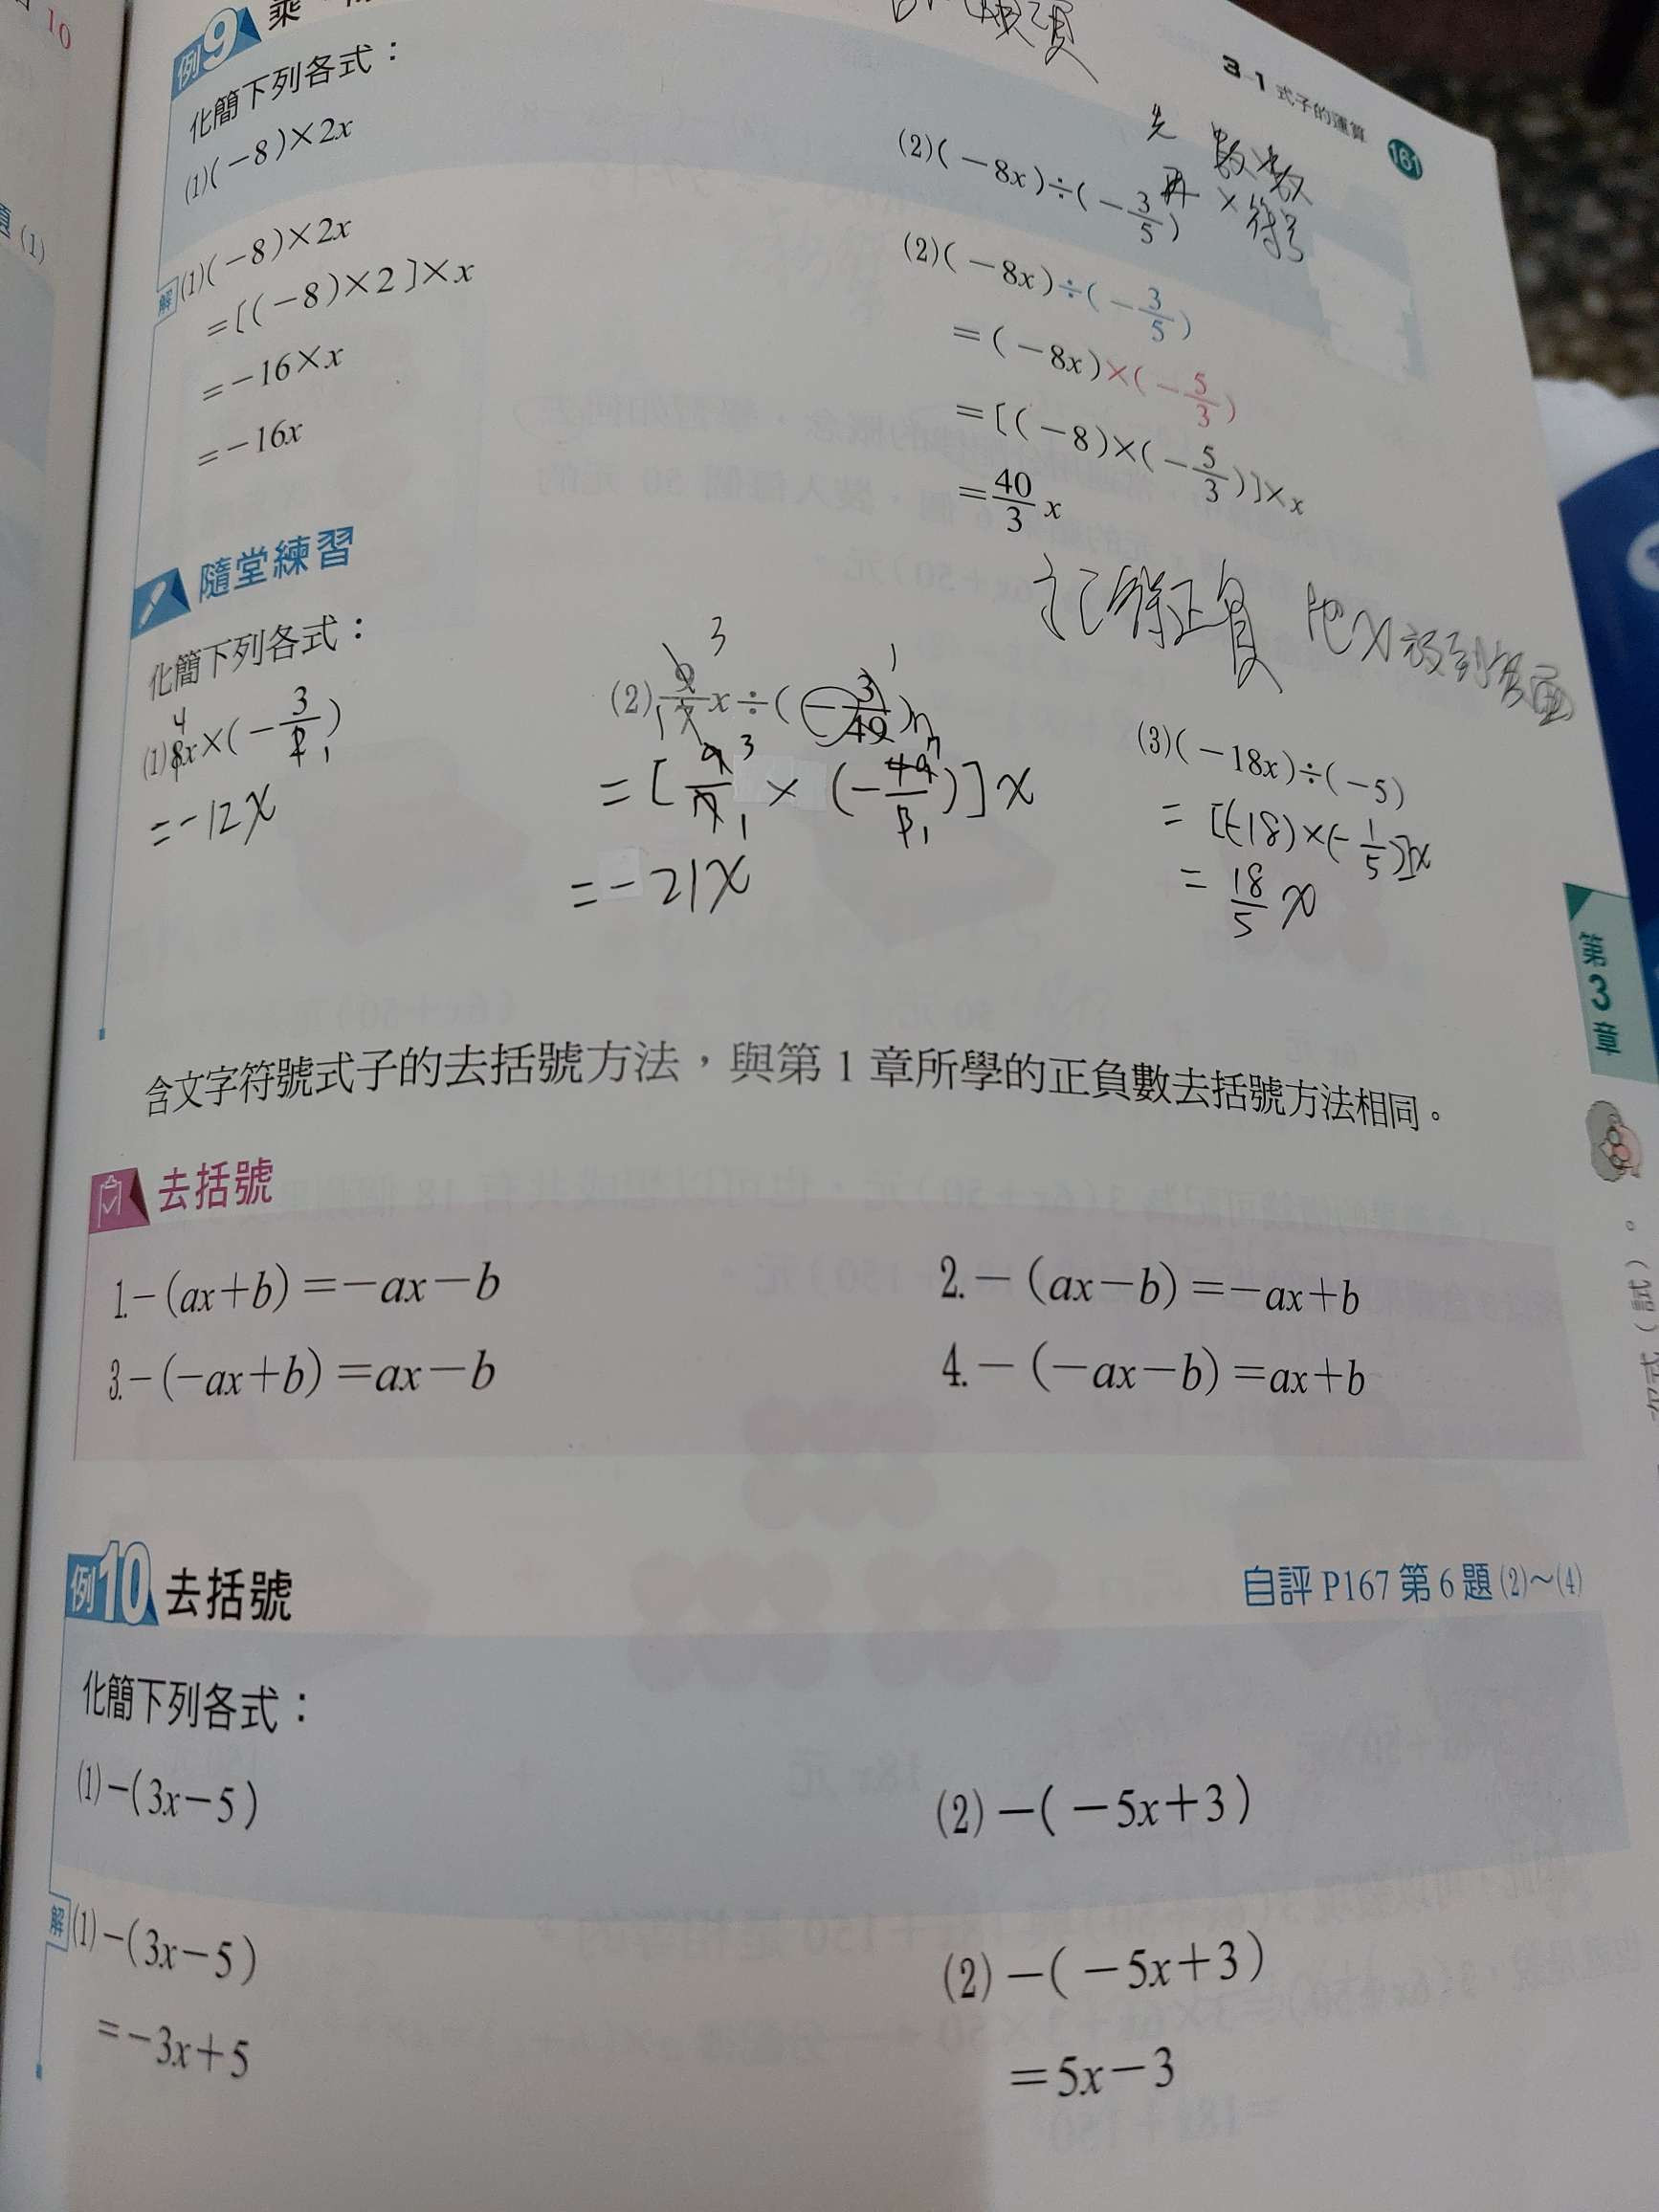 10
(1)
3-1 式子的運算 161
例9 乘
化簡下列各式：
(1)(−8)×2x
(2)(−8x)÷(−3/5)
先 數×數
再 × 符號
解 (1)(−8)×2x
=[(−8)×2]×x
=−16×x
=−16x
(2)(−8x)÷(−3/5)
=(−8x)×(−5/3)
=[(−8)×(−5/3)]×x
=40/3 x
隨堂練習
記得正負 把x放到後面
化簡下列各式：
(1)8x×(−3/2)
4 1
=−12x
(2)9/7 x÷(−3/49)
3 1 1 7
=[9/7×(−49/3)]x
3 1 7 1
=−21x
(3)(−18x)÷(−5)
=[(−18)×(−1/5)]x
=18/5 x
第3章
含文字符號式子的去括號方法，與第1章所學的正負數去括號方法相同。
去括號
1.−(ax+b)=−ax−b
2.−(ax−b)=−ax+b
3.−(−ax+b)=ax−b
4.−(−ax−b)=ax+b
例10 去括號
自評 P167 第 6 題 (2)~(4)
化簡下列各式：
(1)−(3x−5)
(2)−(−5x+3)
解 (1)−(3x−5)
=−3x+5
(2)−(−5x+3)
=5x−3